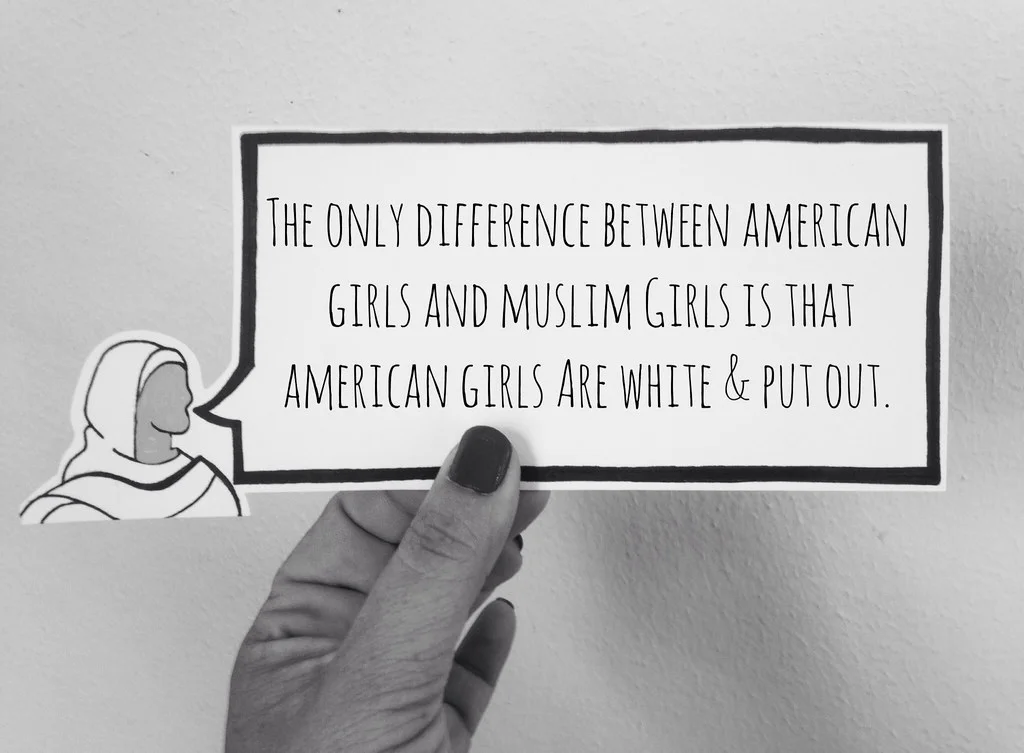 The only difference between american
girls and muslim Girls is that
american girls Are white & put out.